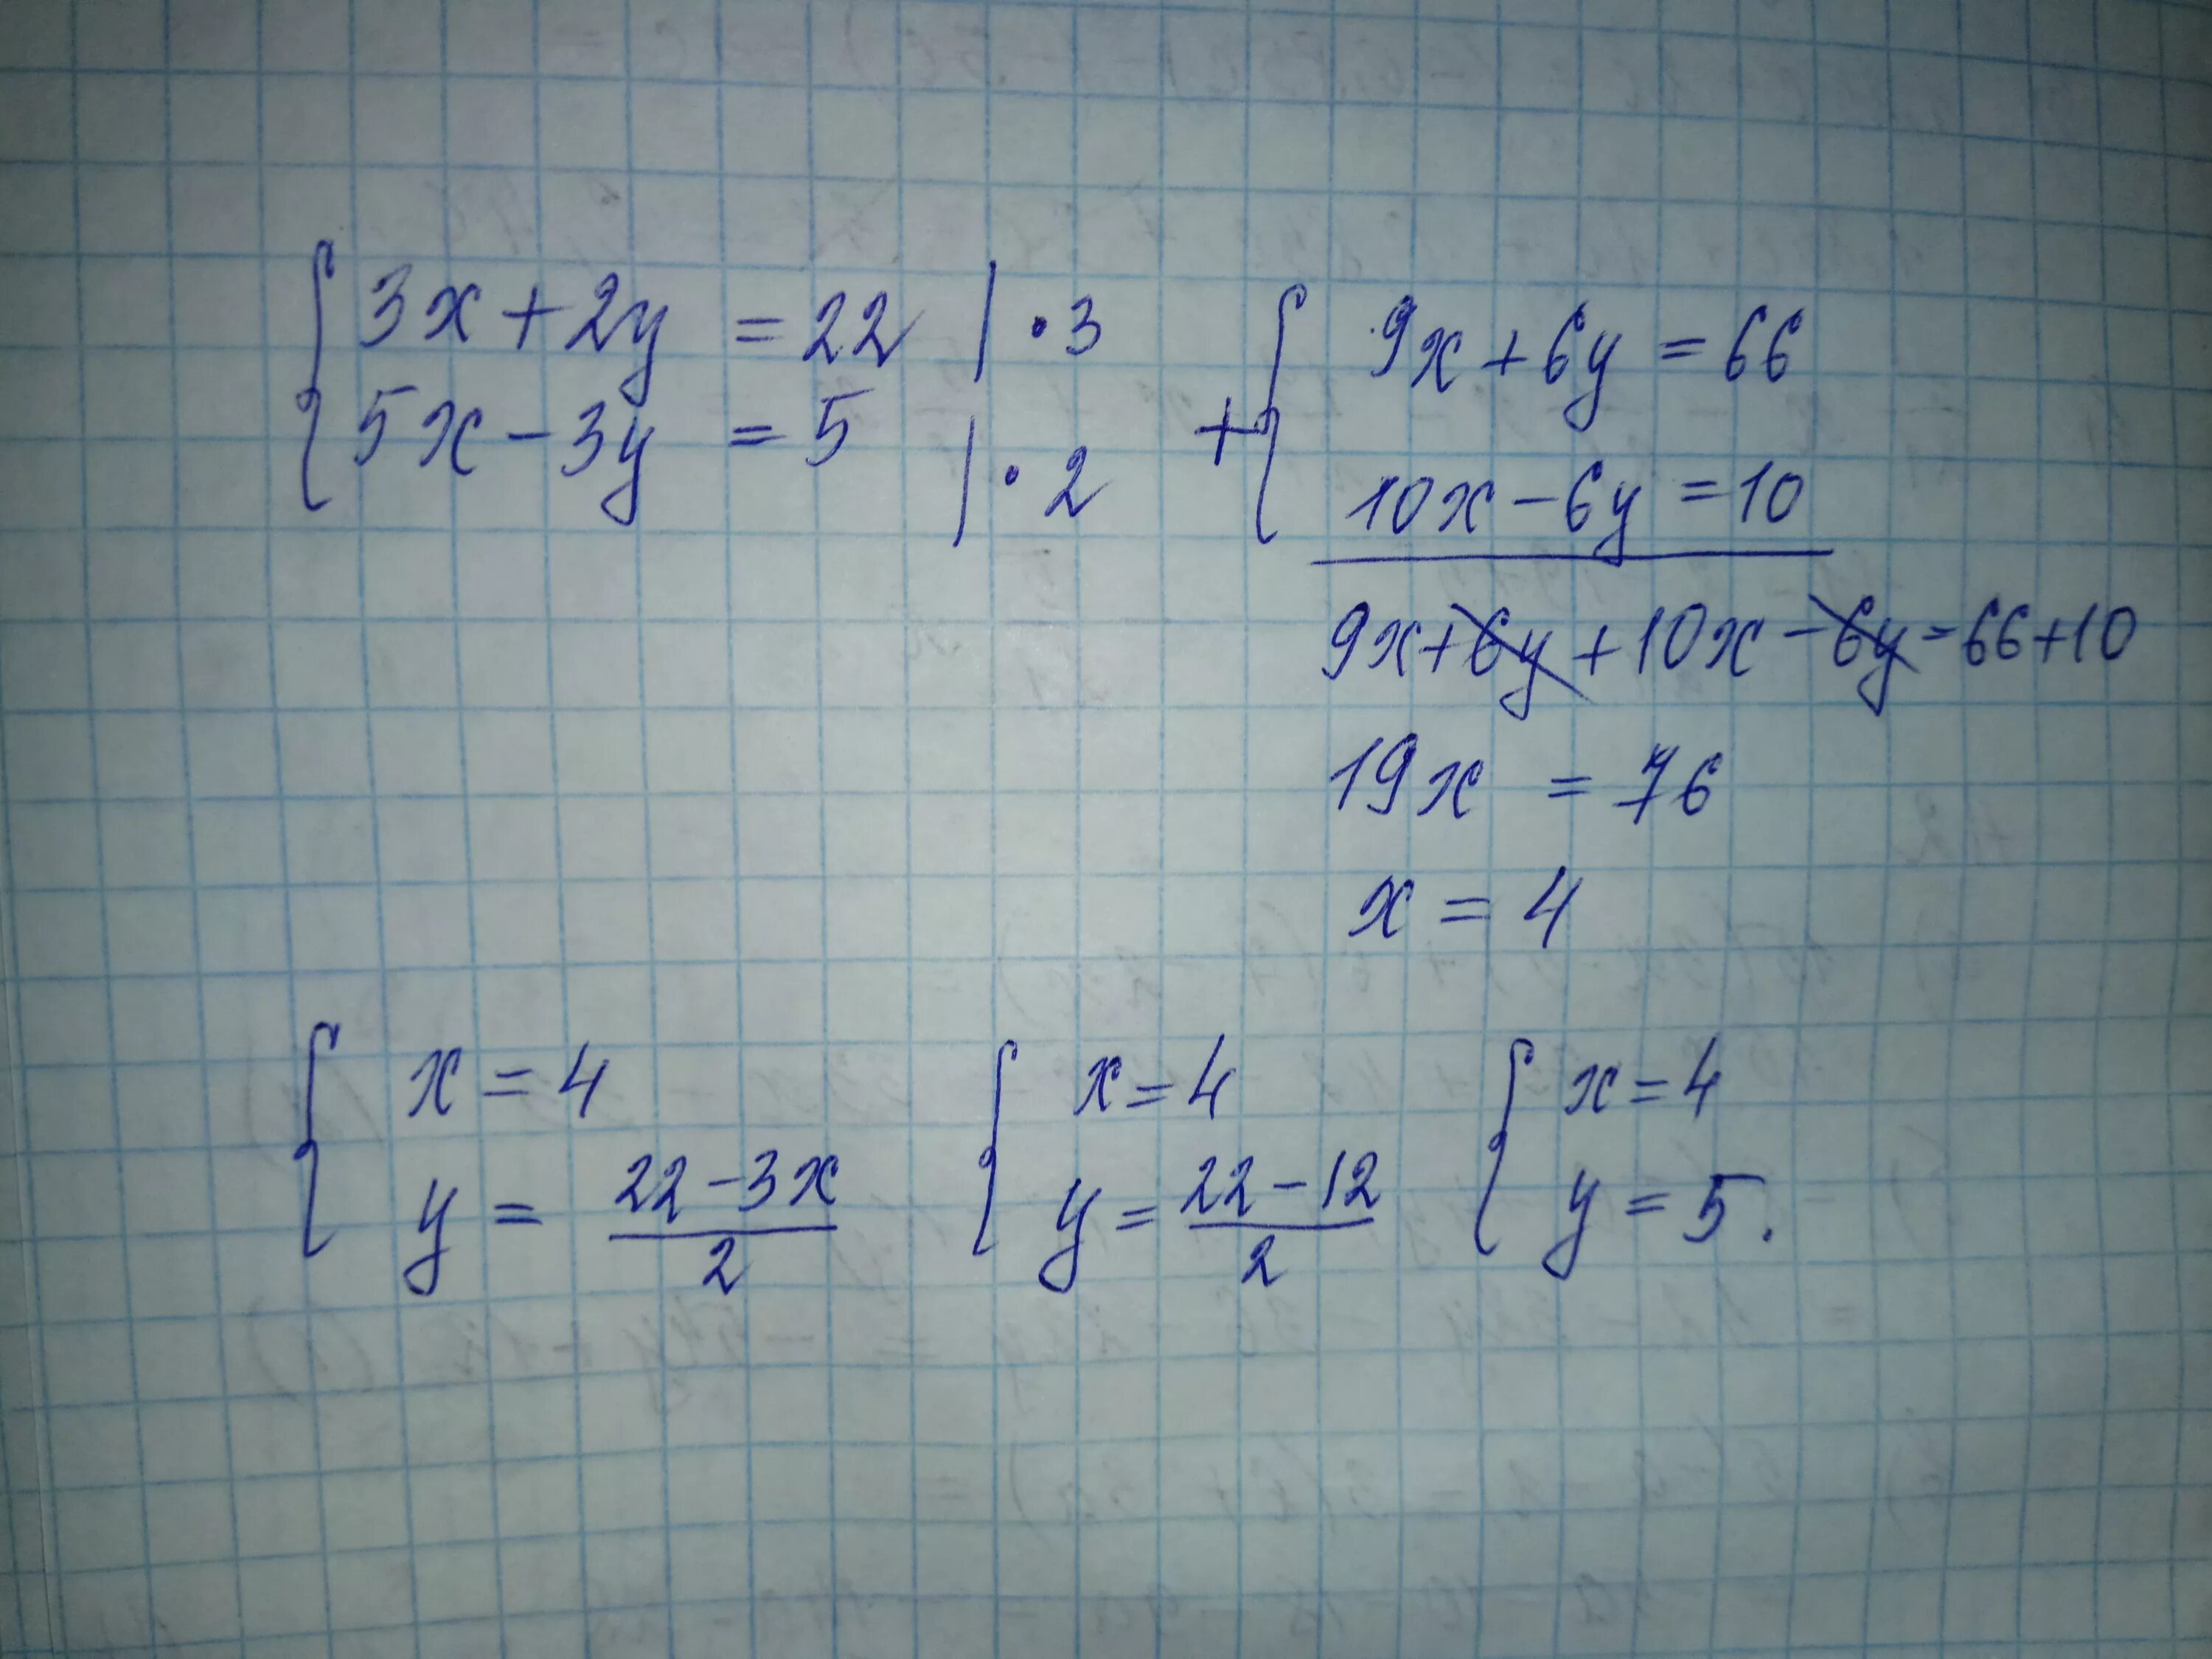 { 3x + 2y = 22 | · 3
5x - 3y = 5 | · 2
+ { 9x + 6y = 66
10x - 6y = 10
9x + 6y + 10x - 6y = 66 + 10
19x = 76
x = 4
{ x = 4
y = 22 - 3x / 2
{ x = 4
y = 22 - 12 / 2
{ x = 4
y = 5.